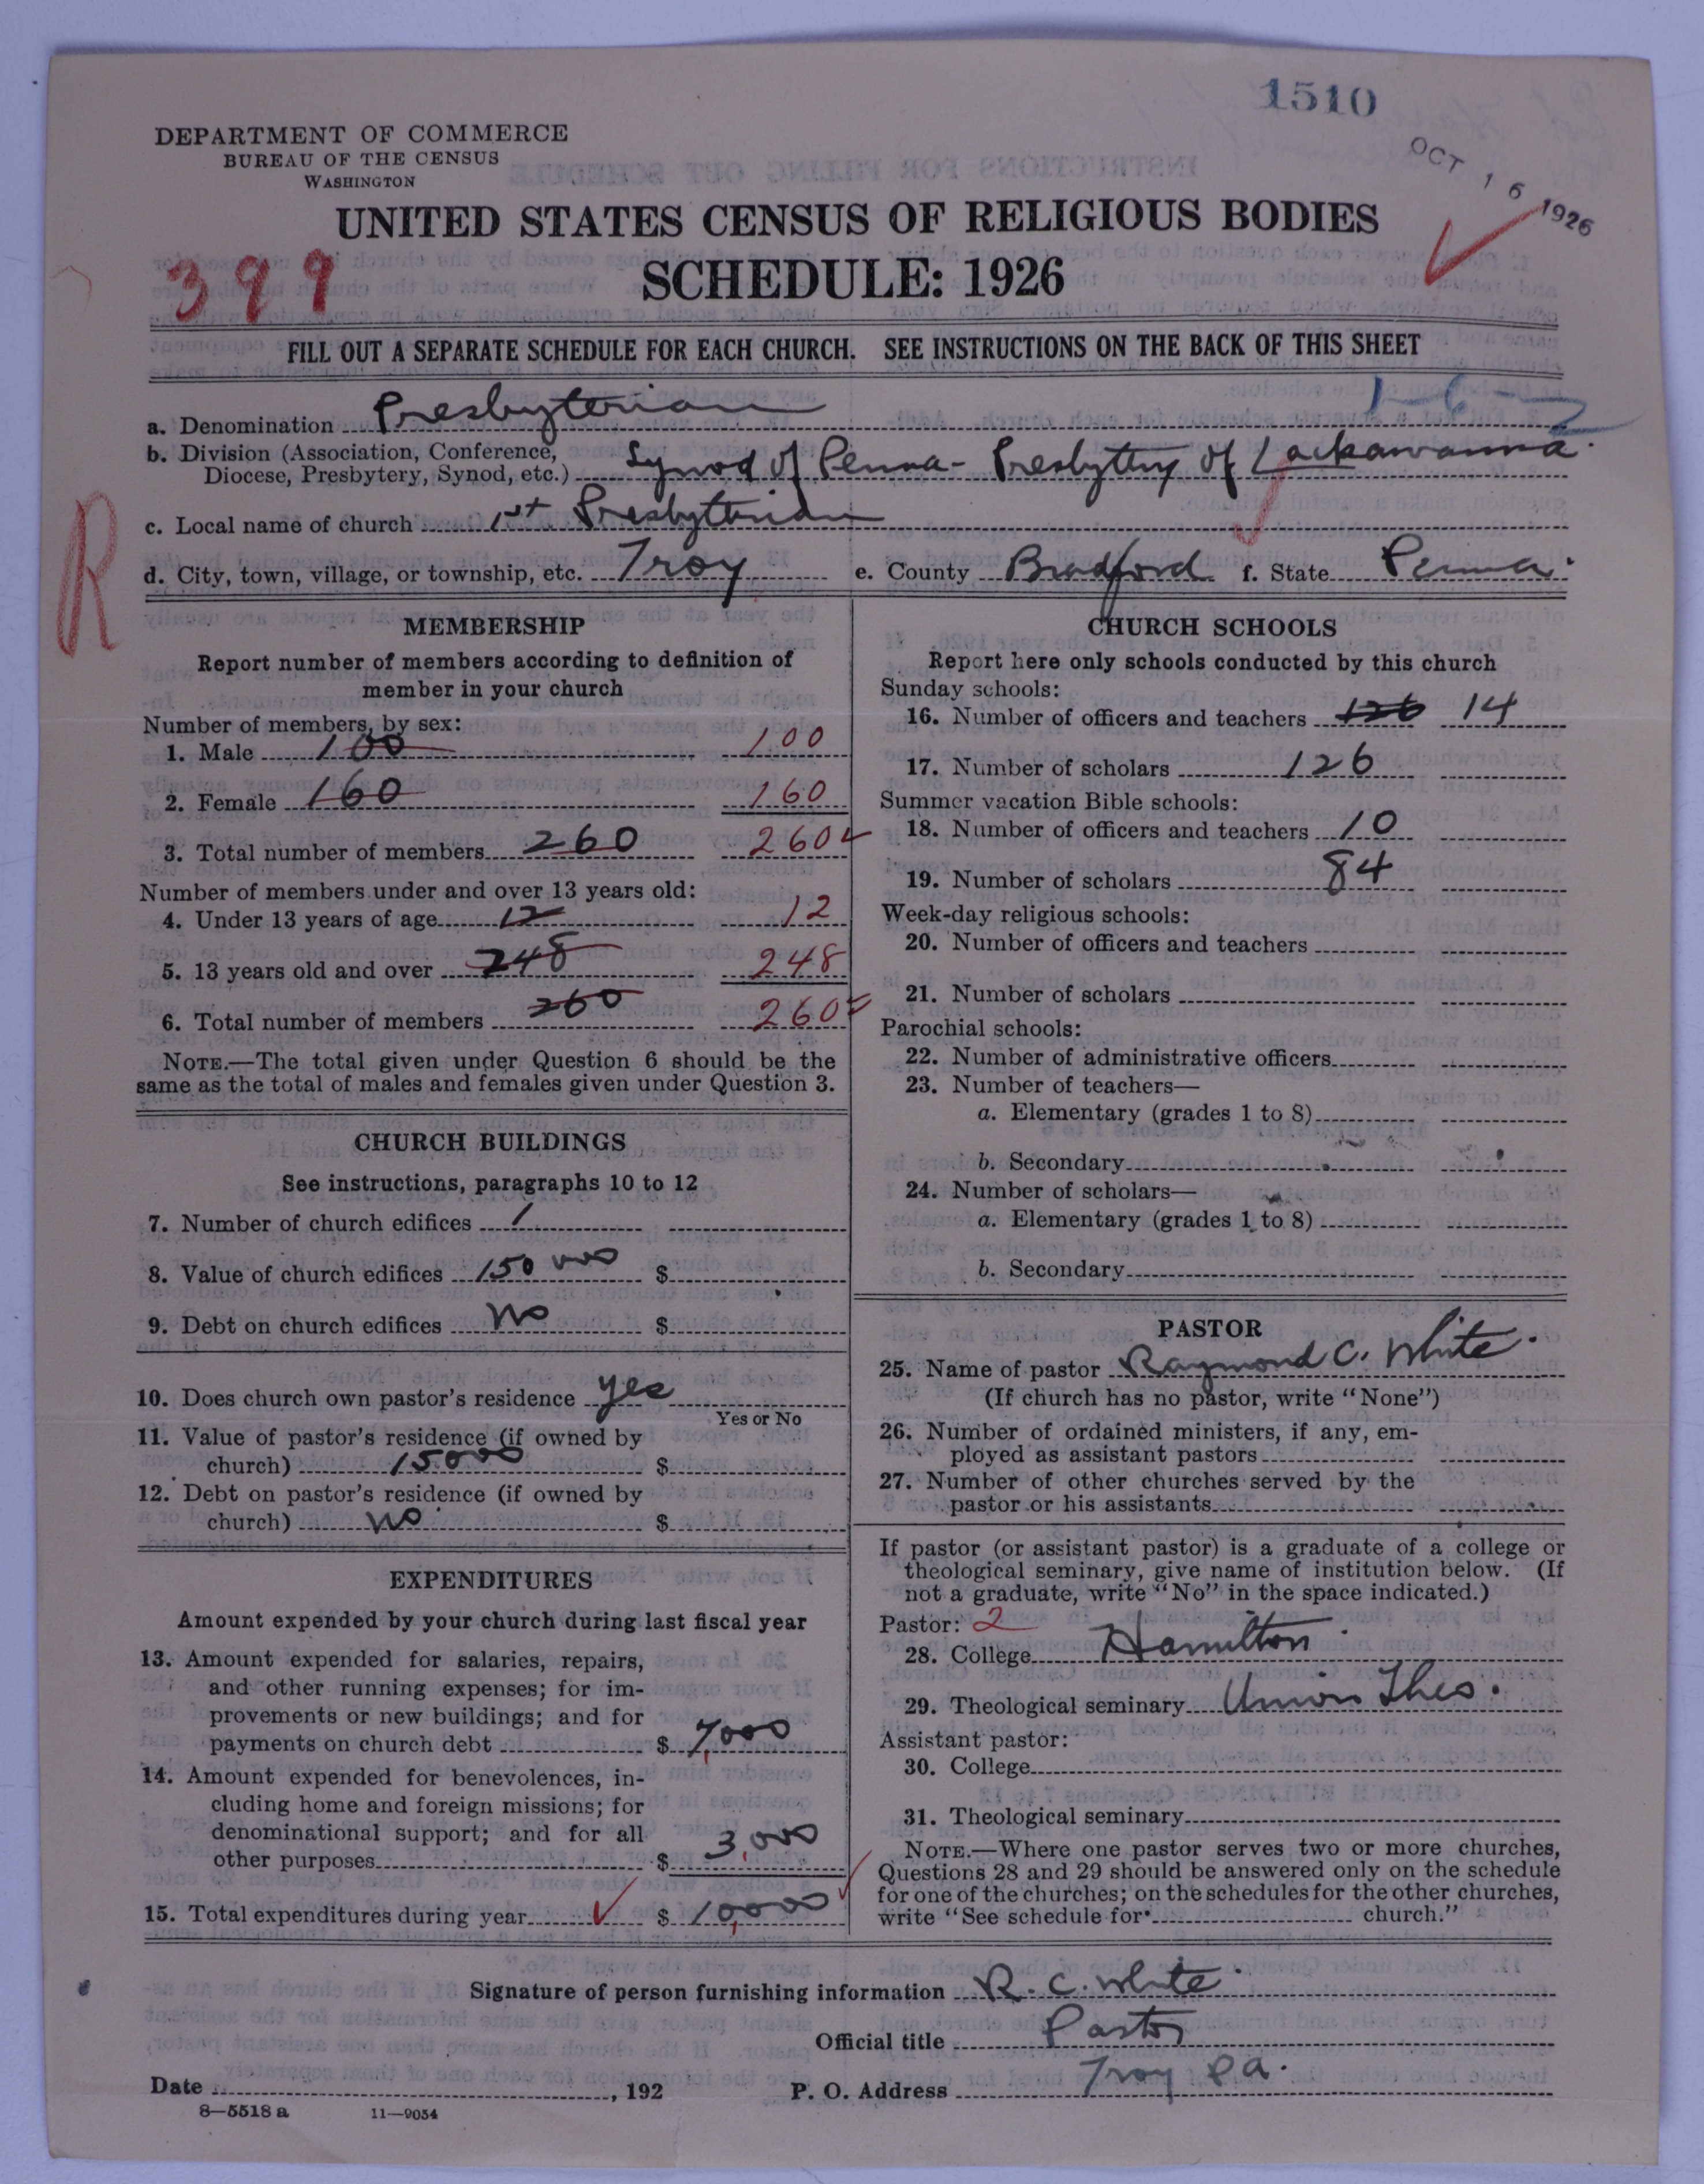 1510
OCT 16 1926
DEPARTMENT OF COMMERCE
BUREAU OF THE CENSUS
WASHINGTON
UNITED STATES CENSUS OF RELIGIOUS BODIES
399
SCHEDULE: 1926
FILL OUT A SEPARATE SCHEDULE FOR EACH CHURCH. SEE INSTRUCTIONS ON THE BACK OF THIS SHEET
1-6-2
a. Denomination Presbyterian
b. Division (Association, Conference,
Diocese, Presbytery, Synod, etc.) Synod of Penna - Presbytery of Lackawanna
R
c. Local name of church 1st Presbyterian
d. City, town, village, or township, etc. Troy e. County Bradford f. State Penna.
MEMBERSHIP
Report number of members according to definition of
member in your church
Number of members, by sex:
1. Male 100 100
2. Female 160 160
3. Total number of members 260 260
Number of members under and over 13 years old:
4. Under 13 years of age 12 12
5. 13 years old and over 248 248
6. Total number of members 260 260
NOTE.—The total given under Question 6 should be the
same as the total of males and females given under Question 3.
CHURCH BUILDINGS
See instructions, paragraphs 10 to 12
7. Number of church edifices 1
8. Value of church edifices 150 000 $
9. Debt on church edifices no $
10. Does church own pastor's residence yes
Yes or No
11. Value of pastor's residence (if owned by
church) 15000 $
12. Debt on pastor's residence (if owned by
church) no $
EXPENDITURES
Amount expended by your church during last fiscal year
13. Amount expended for salaries, repairs,
and other running expenses; for im-
provements or new buildings; and for
payments on church debt $ 7,000
14. Amount expended for benevolences, in-
cluding home and foreign missions; for
denominational support; and for all
other purposes $ 3,000
15. Total expenditures during year $ 10,000
CHURCH SCHOOLS
Report here only schools conducted by this church
Sunday schools:
16. Number of officers and teachers 126 14
17. Number of scholars 126
Summer vacation Bible schools:
18. Number of officers and teachers 10
19. Number of scholars 84
Week-day religious schools:
20. Number of officers and teachers
21. Number of scholars
Parochial schools:
22. Number of administrative officers
23. Number of teachers—
a. Elementary (grades 1 to 8)
b. Secondary
24. Number of scholars—
a. Elementary (grades 1 to 8)
b. Secondary
PASTOR
25. Name of pastor Raymond C. White.
(If church has no pastor, write "None")
26. Number of ordained ministers, if any, em-
ployed as assistant pastors
27. Number of other churches served by the
pastor or his assistants
If pastor (or assistant pastor) is a graduate of a college or
theological seminary, give name of institution below. (If
not a graduate, write "No" in the space indicated.)
Pastor: 2
28. College Hamilton.
29. Theological seminary Union Theo.
Assistant pastor:
30. College
31. Theological seminary
NOTE.—Where one pastor serves two or more churches,
Questions 28 and 29 should be answered only on the schedule
for one of the churches; on the schedules for the other churches,
write "See schedule for church."
Signature of person furnishing information R. C. White
Official title Pastor
Date , 192 P. O. Address Troy Pa.
8—5518 a 11—9054